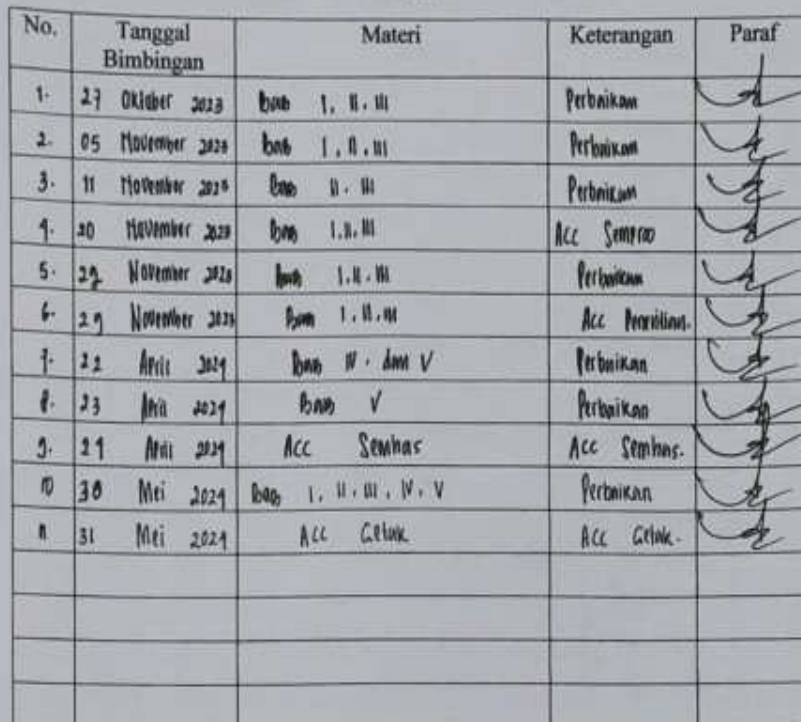 No. Tanggal Bimbingan Materi Keterangan Paraf
1. 27 Oktober 2023 Bab I, II, III Perbaikan
2. 05 November 2023 Bab I, II, III Perbaikan
3. 11 November 2023 Bab II, III Perbaikan
4. 20 November 2023 Bab I, II, III Acc Sempro
5. November 2023 Bab I, II, III Perbaikan
6. 29 November 2023 Bab I, II, III Acc Penelitian.
7. 22 April 2024 Bab IV. dan V Perbaikan
8. 23 April 2024 Bab V Perbaikan
9. 24 April 2024 Acc Semhas Acc Semhas.
10 30 Mei 2024 Bab I, II, III, IV, V Perbaikan
11 31 Mei 2024 Acc Cetak Acc Cetak.